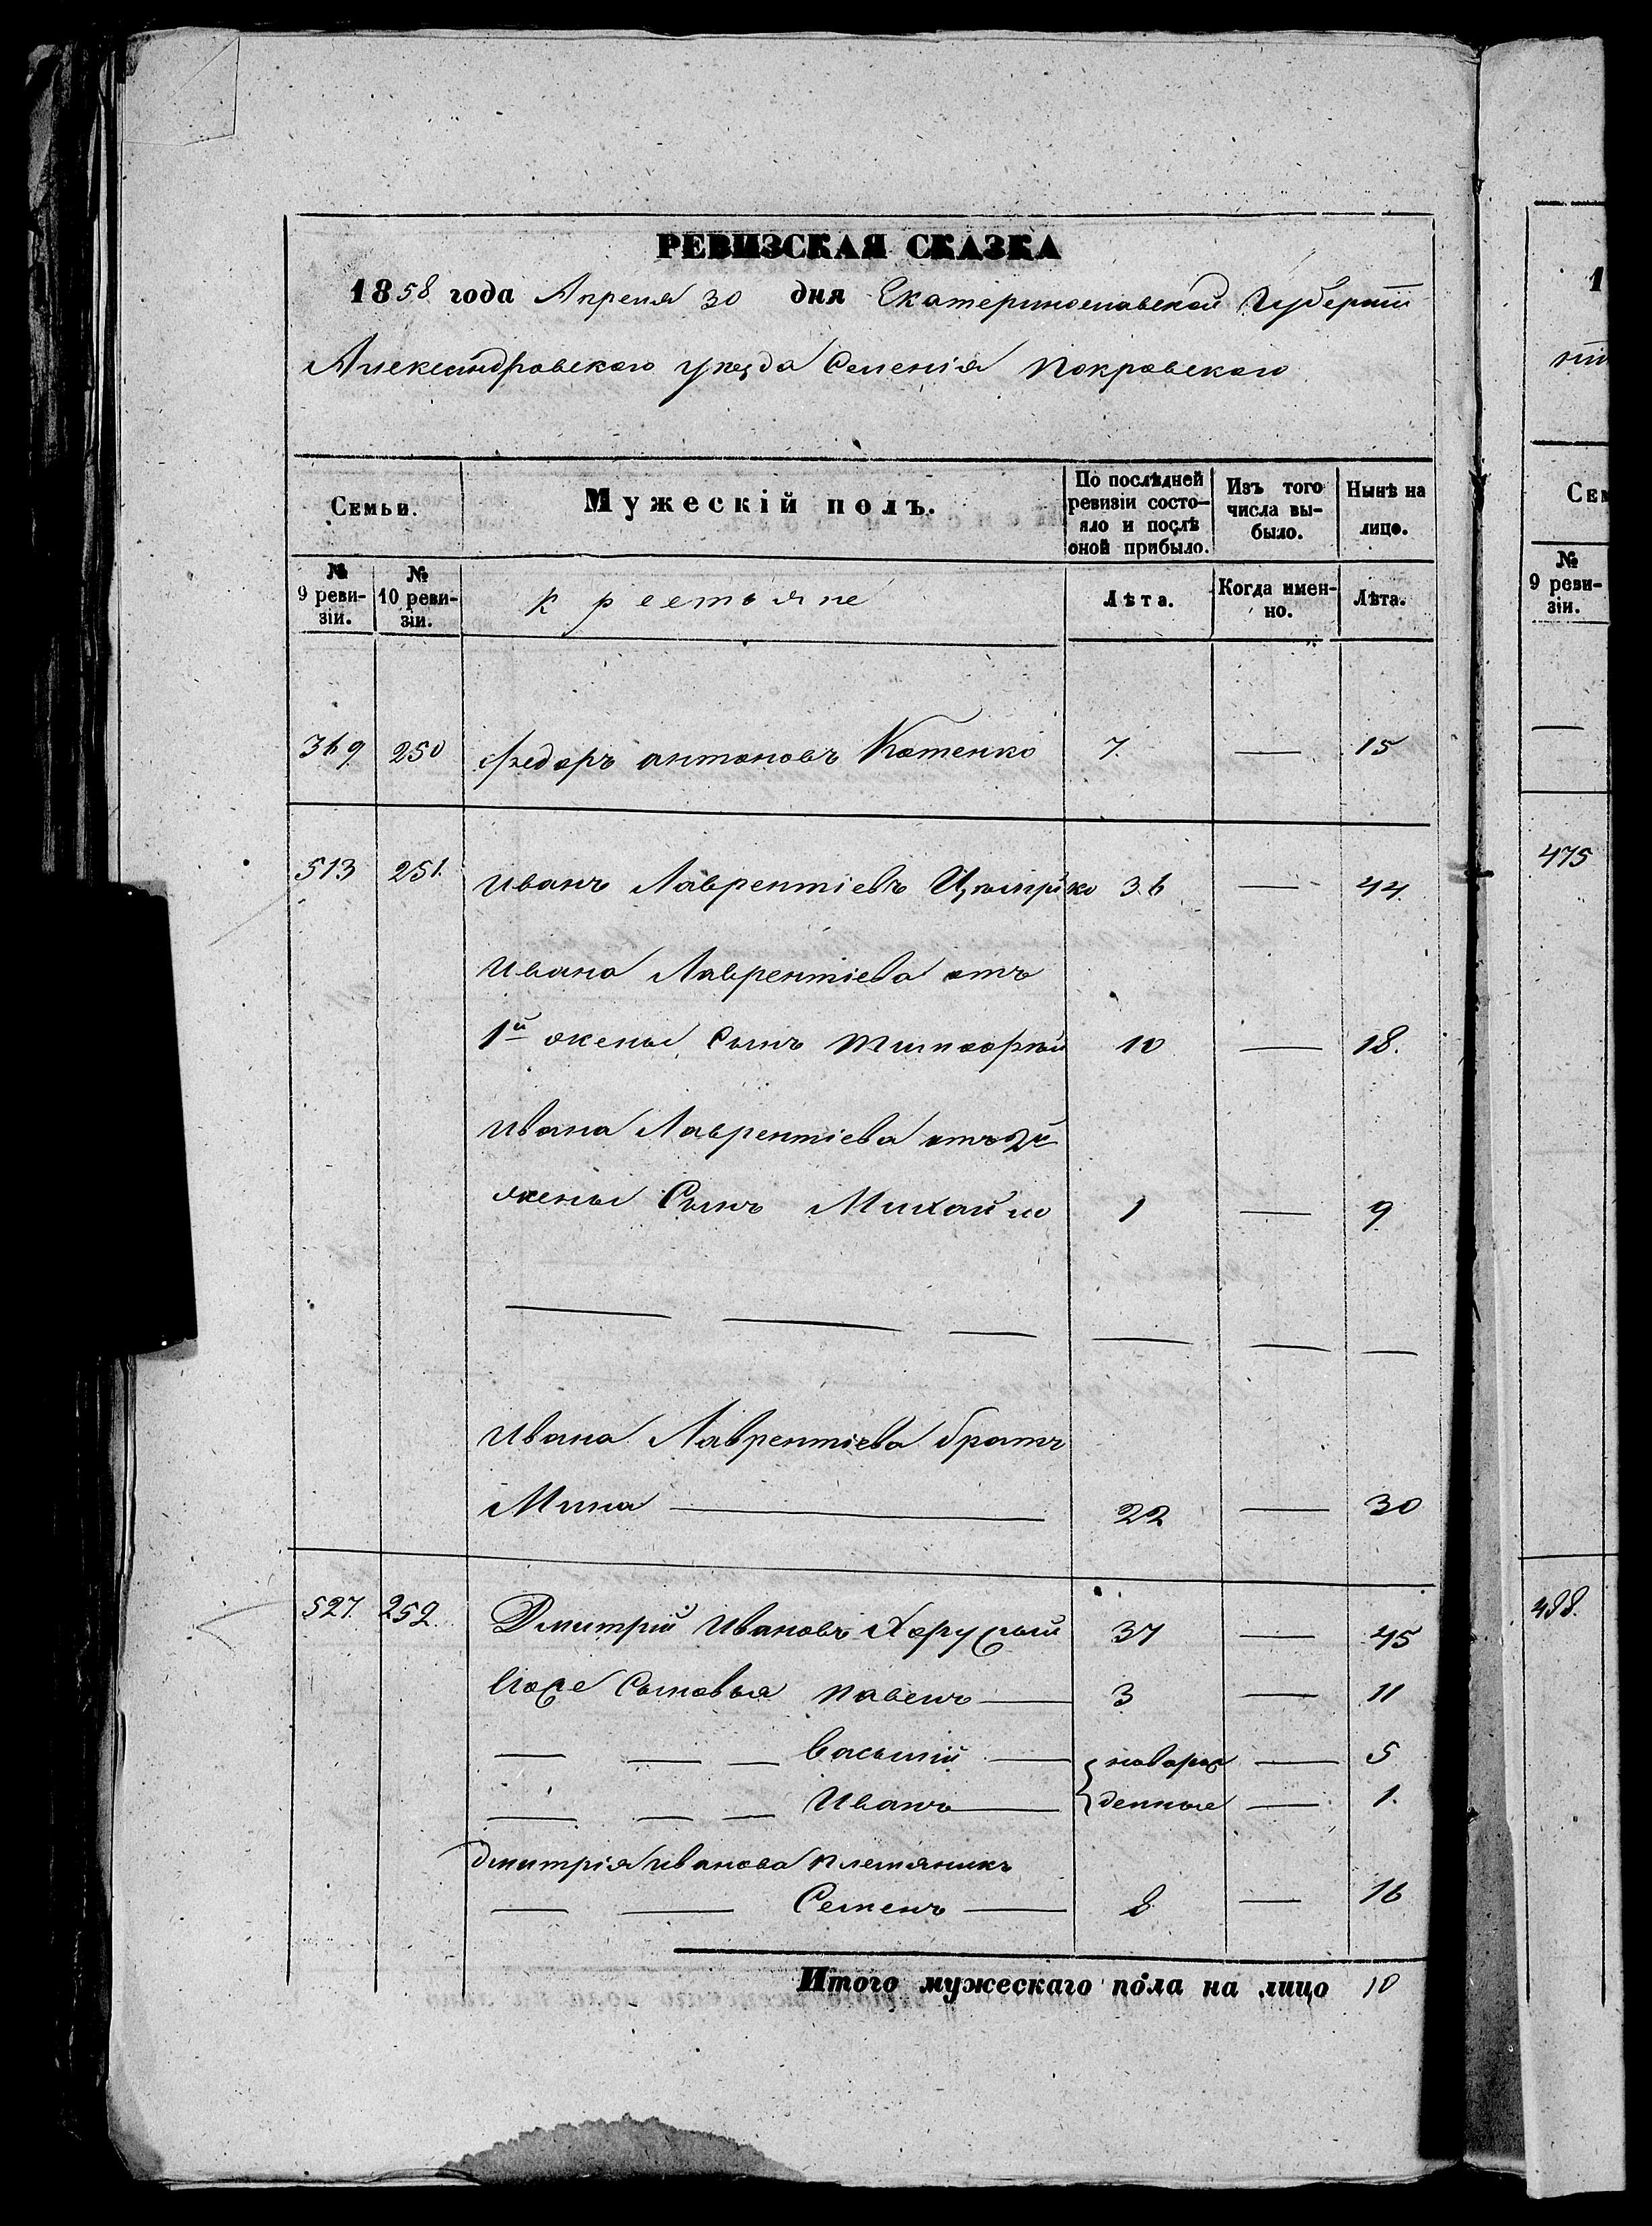 РЕВИЗСКАЯ СКАЗКА
1858 года Апреля 30 дня Екатеринославской Губернии
Александровского уезда Селенія Покровского
Семьи. Мужескій полъ. По послѣдней ревизіи состояло и послѣ оной прибыло. Изъ того числа выбыло. Нынѣ на лицо.
№ 9 ревизіи. № 10 ревизіи. Крестьяне Лѣта. Когда именно. Лѣта.
369 250 Федоръ антоновъ Котенко 7. — 15
513 251. Иванъ Лаврентіевъ 36 — 44.
Ивана Лаврентіева отъ
1й жены Сынъ 10 — 18.
Ивана Лаврентіева отъ 2й
жены Сынъ Михайло 1 — 9
— — — — — —
Ивана Лаврентіева братъ
Мина — 22 — 30
527. 252. Дмитрій Ивановъ 37 — 45
Сыновья Павелъ — 3 — 11
— — — Василій — новорож — 5
— — — Иванъ — денные — 1.
Дмитрія иванова племяникъ
— — Семенъ — 8 — 16
Итого мужескаго пола на лицо 10
1
Сем
№ 9 ревизіи.
—
475
488.